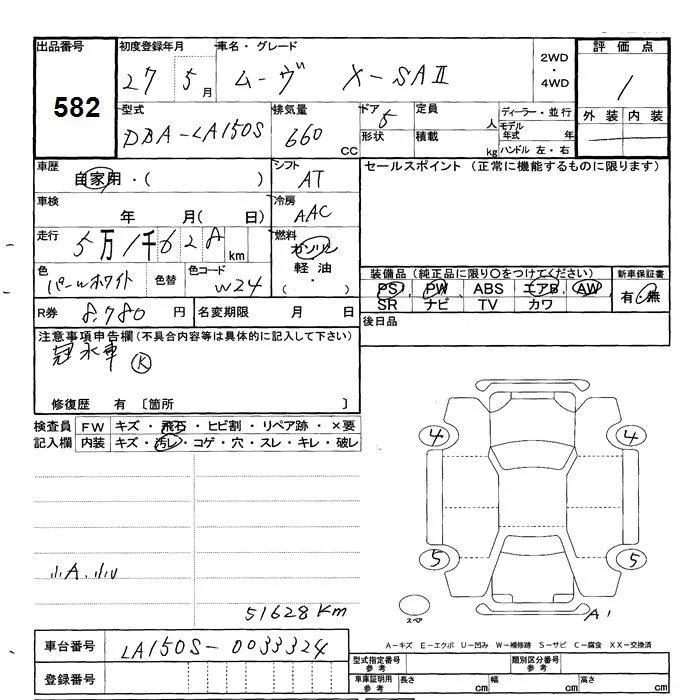 出品番号 初度登録年月 車名・グレード 2WD ・ 4WD 評価点
582 27 5月 ムーヴ X-SAⅡ 1
型式 排気量 ドア 5 定員 人 ディーラー・並行 外装 内装
DBA-LA150S 660 CC 形状 積載 kg モデル年式 年 ハンドル 左・右
車歴 自家用・( ) シフト AT セールスポイント (正常に機能するものに限ります)
車検 年 月( 日) 冷房 AAC
走行 5万1千628 km 燃料 ガソリン 軽油 ( ・ )
色 パールホワイト 色替 色コード W24 装備品 (純正品に限り○をつけてください) 新車保証書
PS PW ABS エアB AW 有・無
SR ナビ TV カワ
R券 8,780 円 名変期限 月 日 後日品
注意事項申告欄 (不具合内容等は具体的に記入して下さい)
冠水車 Ⓚ
修復歴 有 〔箇所 〕
検査員 FW キズ・飛石・ヒビ割・リペア跡・×要
記入欄 内装 キズ・汚レ・コゲ・穴・スレ・キレ・破レ
4 4
5 5
小A.小U
51628Km
スペア
A1
車台番号 LA150S-0033324
A-キズ E-エクボ U-凹み W-補修跡 S-サビ C-腐食 XX-交換済
登録番号
型式指定番号 参考 類別区分番号 参考
車庫証明用 参考 長さ cm 幅 cm 高さ cm